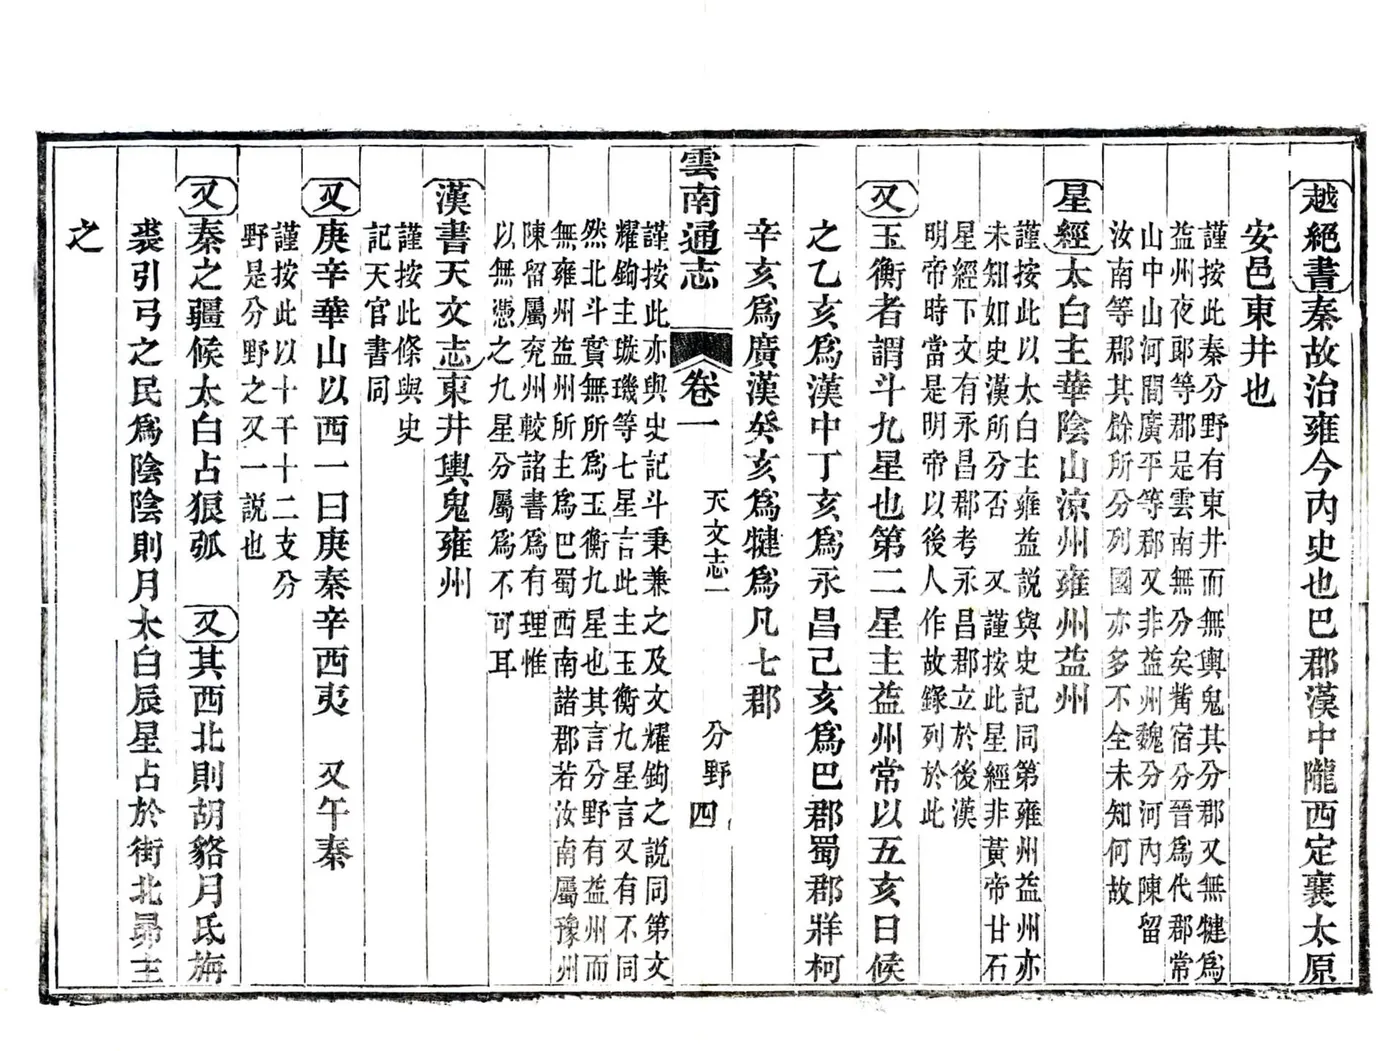 越絕書秦故治雍今內史也巴郡漢中隴西定襄太原
安邑東井也
謹按此秦分野有東井而無輿鬼其分郡又無犍爲
益州夜郞等郡是雲南無分矣觜宿分晉爲代郡常
山中山河閒廣平等郡又非益州魏分河內陳留
汝南等郡其餘所分列國亦多不全未知何故
星經太白主華陰山涼州雍州益州
謹按此以太白主雍益說與史記同第雍州益州亦
未知如史漢所分否 又謹按此星經非黃帝甘石
星經下文有永昌郡考永昌郡立於後漢
明帝時當是明帝以後人作故錄列於此
又玉衡者謂斗九星也第二星主益州常以五亥日候
之乙亥爲漢中丁亥爲永昌己亥爲巴郡蜀郡牂柯
辛亥爲廣漢癸亥爲犍爲凡七郡
雲南通志 卷一 天文志一 分野 四
謹按此亦與史記斗秉兼之及文耀鉤之說同第文
耀鉤主璇璣等七星言此主玉衡九星言又有不同
然北斗實無所爲玉衡九星也其言分野有益州而
無雍州益州所主爲巴蜀西南諸郡若汝南屬豫州
陳留屬兗州較諸書爲有理惟
以無憑之九星分屬爲不可耳
漢書天文志東井輿鬼雍州
謹按此條與史
記天官書同
又庚辛華山以西一曰庚秦辛西夷 又午秦
謹按此以十干十二支分
野是分野之又一說也
又秦之疆候太白占狼弧 又其西北則胡貉月氐旃
裘引弓之民爲陰陰則月太白辰星占於街北昴主
之